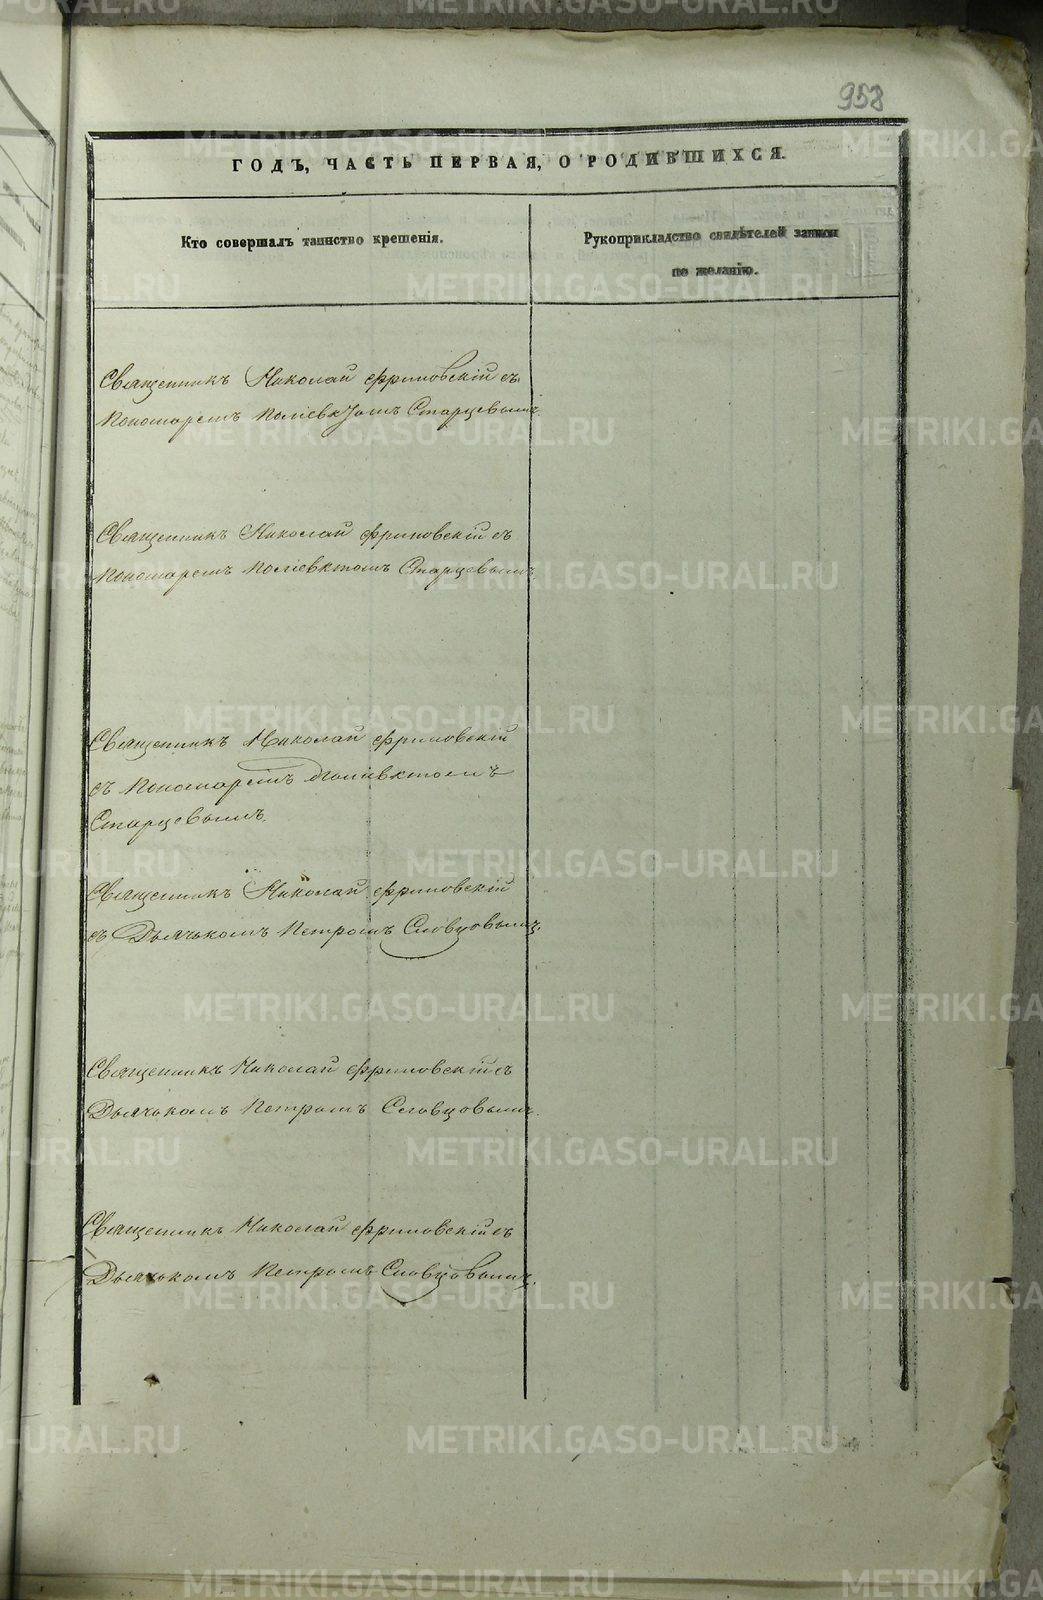 958
ГОДЪ, ЧАСТЬ ПЕРВАЯ, О РОДИВШИХСЯ.
Кто совершалъ таинство крещенія.
Рукоприкладство свидѣтелей записи
по желанію.
Священникъ Николай Фриновскій съ
Пономаремъ Поліевктомъ Старцевымъ.
Священникъ Николай Фриновскій съ
Пономаремъ Поліевктомъ Старцевымъ.
Священникъ Николай Фриновскій
съ Пономаремъ Поліевктомъ
Старцевымъ.
Священникъ Николай Фриновскій
съ Дьячькомъ Петромъ Словцовымъ.
Священникъ Николай Фриновскій съ
Дьячькомъ Петромъ Словцовымъ.
Священникъ Николай Фриновскій съ
Дьячькомъ Петромъ Словцовымъ.
METRIKI.GASO-URAL.RU